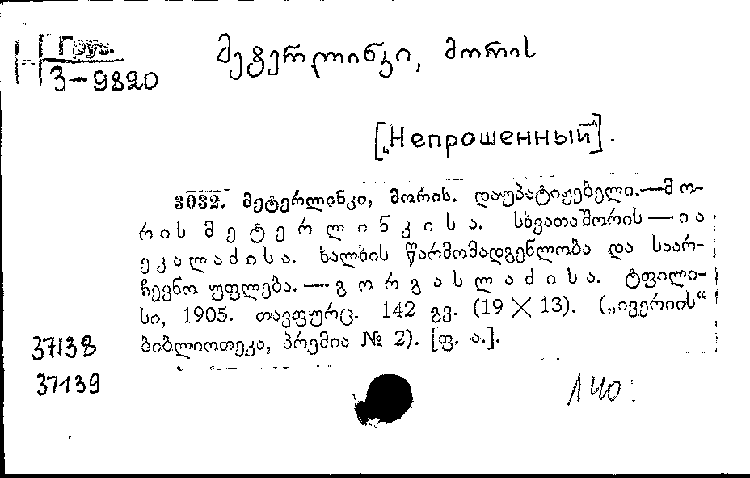 Н Груз.
3-9820
მეტერლინკი, მორის
[„Непрошенный"].
3032. მეტერლინკი, მორის. დაუპატიჟებელი.—მო-
რის მეტერლინკისა. სხვათაშორის — ია
ეკალაძისა. ხალხის წარმომადგენლობა და საარ-
ჩევნო უფლება. — გორგასლაძისა. ტფილი-
სი, 1905. თავფურც. 142 გვ. (19 × 13). („ივერიის“
ბიბლიოთეკა, პრემია № 2). [ფ. ა.].
37138
37139
140: